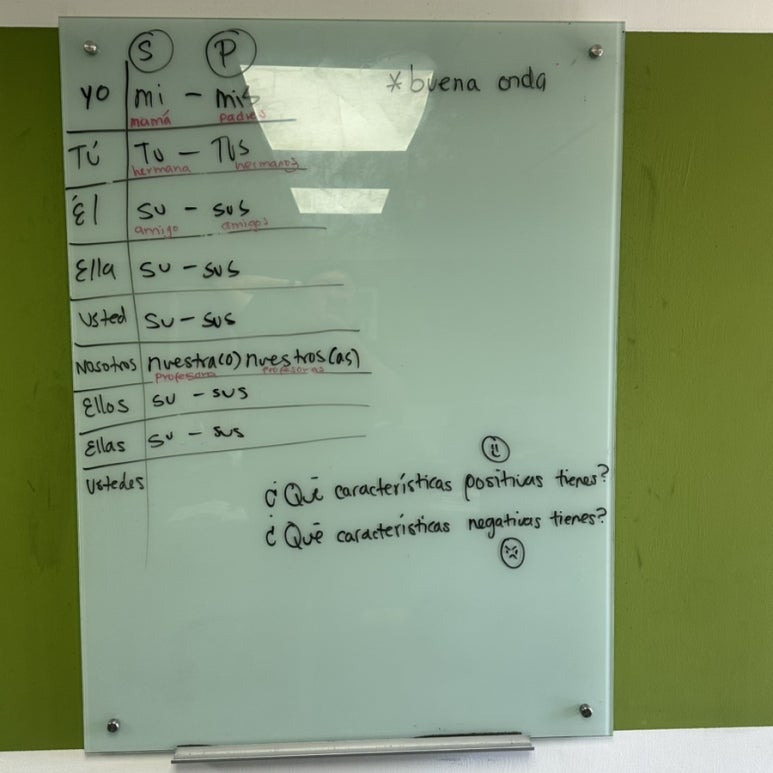 S P
yo mi - mis
mamá padres
Tú Tu - Tus
hermana hermanos
Él su - sus
amigo amigos
Ella su - sus
Usted su - sus
Nosotros nuestra(o) nuestros(as)
profesora profesoras
Ellos su - sus
Ellas su - sus
Ustedes
*buena onda
¿Qué características positivas tienes?
¿Qué características negativas tienes?